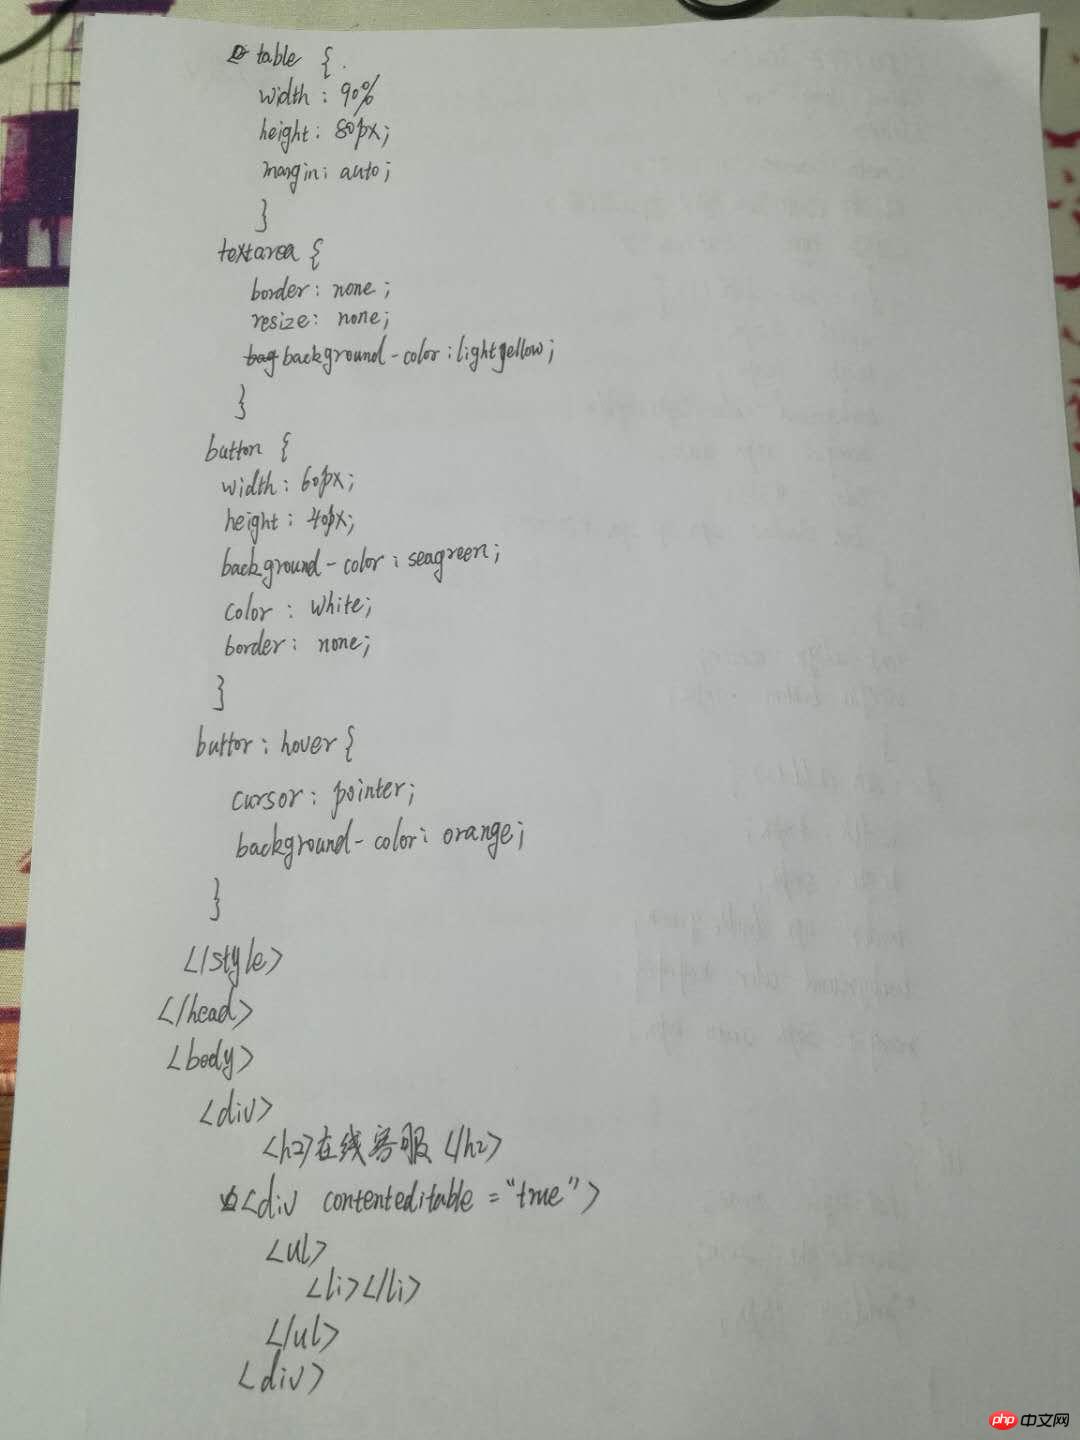 table {
width : 90%
height : 80px;
margin: auto;
}
textarea {
border: none;
resize: none;
bag background-color: lightyellow;
}
button {
width : 60px;
height : 40px;
background-color : seagreen;
color : white;
border : none;
}
buttor : hover {
cursor : pointer;
background-color: orange;
}
</style>
</head>
<body>
<div>
<h2>在线客服</h2>
<div contenteditable = "true">
<ul>
<li></li>
</ul>
<div>
php 中文网